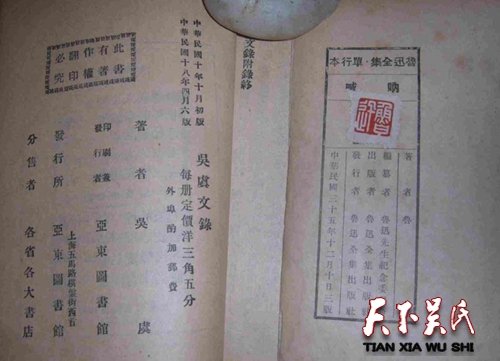 魯迅全集·單行本
吶喊
魯迅
著者 魯
編纂者 魯迅先生紀念委
出版者 魯迅全集出版
發行者 魯迅全集出版社
中華民國三十五年十二月十日三版
文錄附錄終
中華民國十年十月初版
中華民國十八年四月六版
吳虞文錄
每册定價洋三角五分
外埠酌加郵費
著者 吳虞
印刷兼發行者 亞東圖書館
發行所 亞東圖書館
上海五馬路棋盤街西首
分售者 各省各大書店
此書
有著
作權
翻印
必究
天下吴氏
TIAN XIA WU SHI